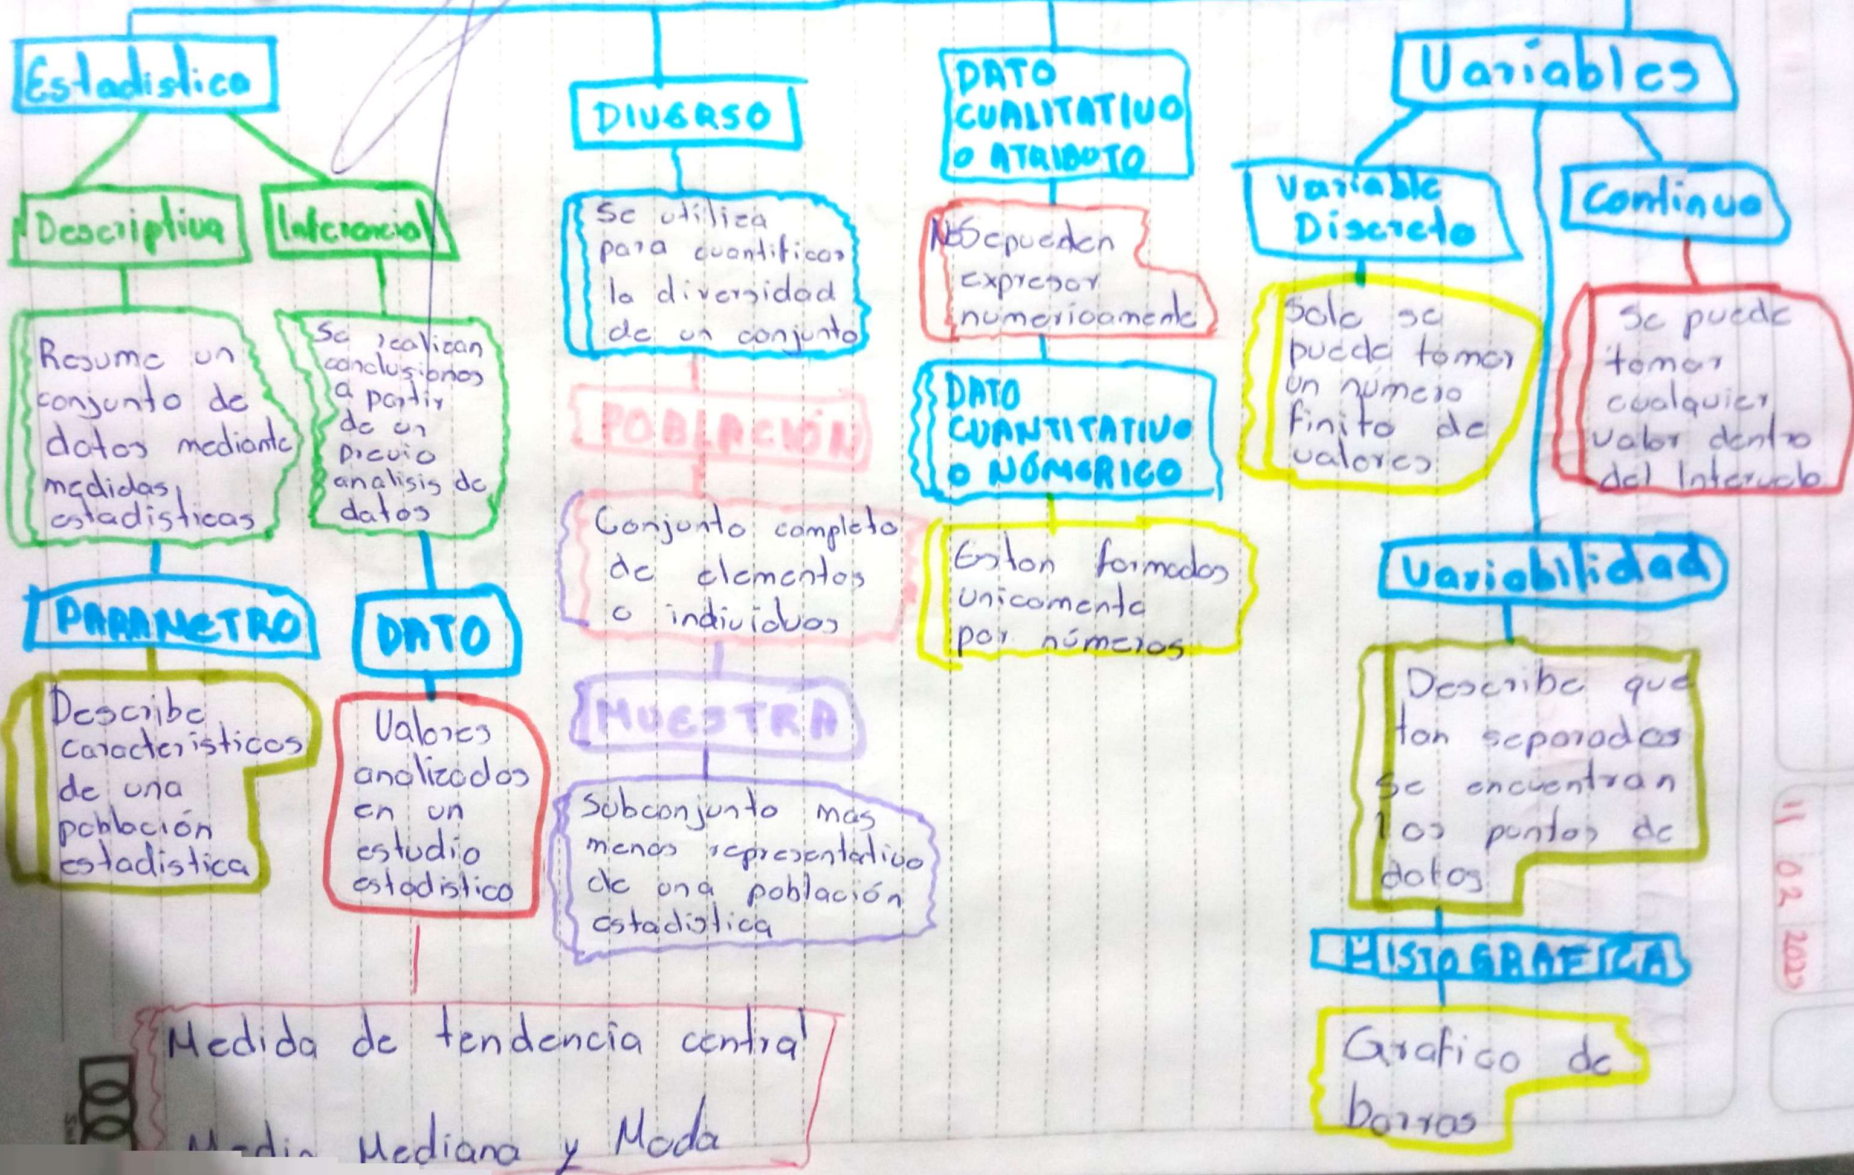 Estadistica
Descriptiva
Inferencial
Resume un
conjunto de
datos mediante
medidas
estadisticas
Se realizan
conclusiones
a partir
de un
previo
analisis de
datos
PARAMETRO
Describe
caracteristicas
de una
población
estadistica
DATO
Valores
analizados
en un
estudio
estadistico
Medida de tendencia central
Media Mediana y Moda
DIVERSO
Se utiliza
para cuantificar
la diversidad
de un conjunto
POBLACIÓN
Conjunto completo
de elementos
o individuos
MUESTRA
Subconjunto mas
menos representativo
de una población
estadistica
DATO
CUALITATIVO
O ATRIBUTO
No Se pueden
expresar
numericamente
DATO
CUANTITATIVO
O NÚMERICO
Estan formados
unicamente
por números
Variables
Variable
Discreta
Solo se
puede tomar
un número
finito de
valores
Continua
Se puede
tomar
cualquier
valor dentro
del Intervalo
Variabilidad
Describe que
tan separados
se encuentran
los puntos de
datos
HISTOGRAFICA
Grafico de
barras
11 02 2023